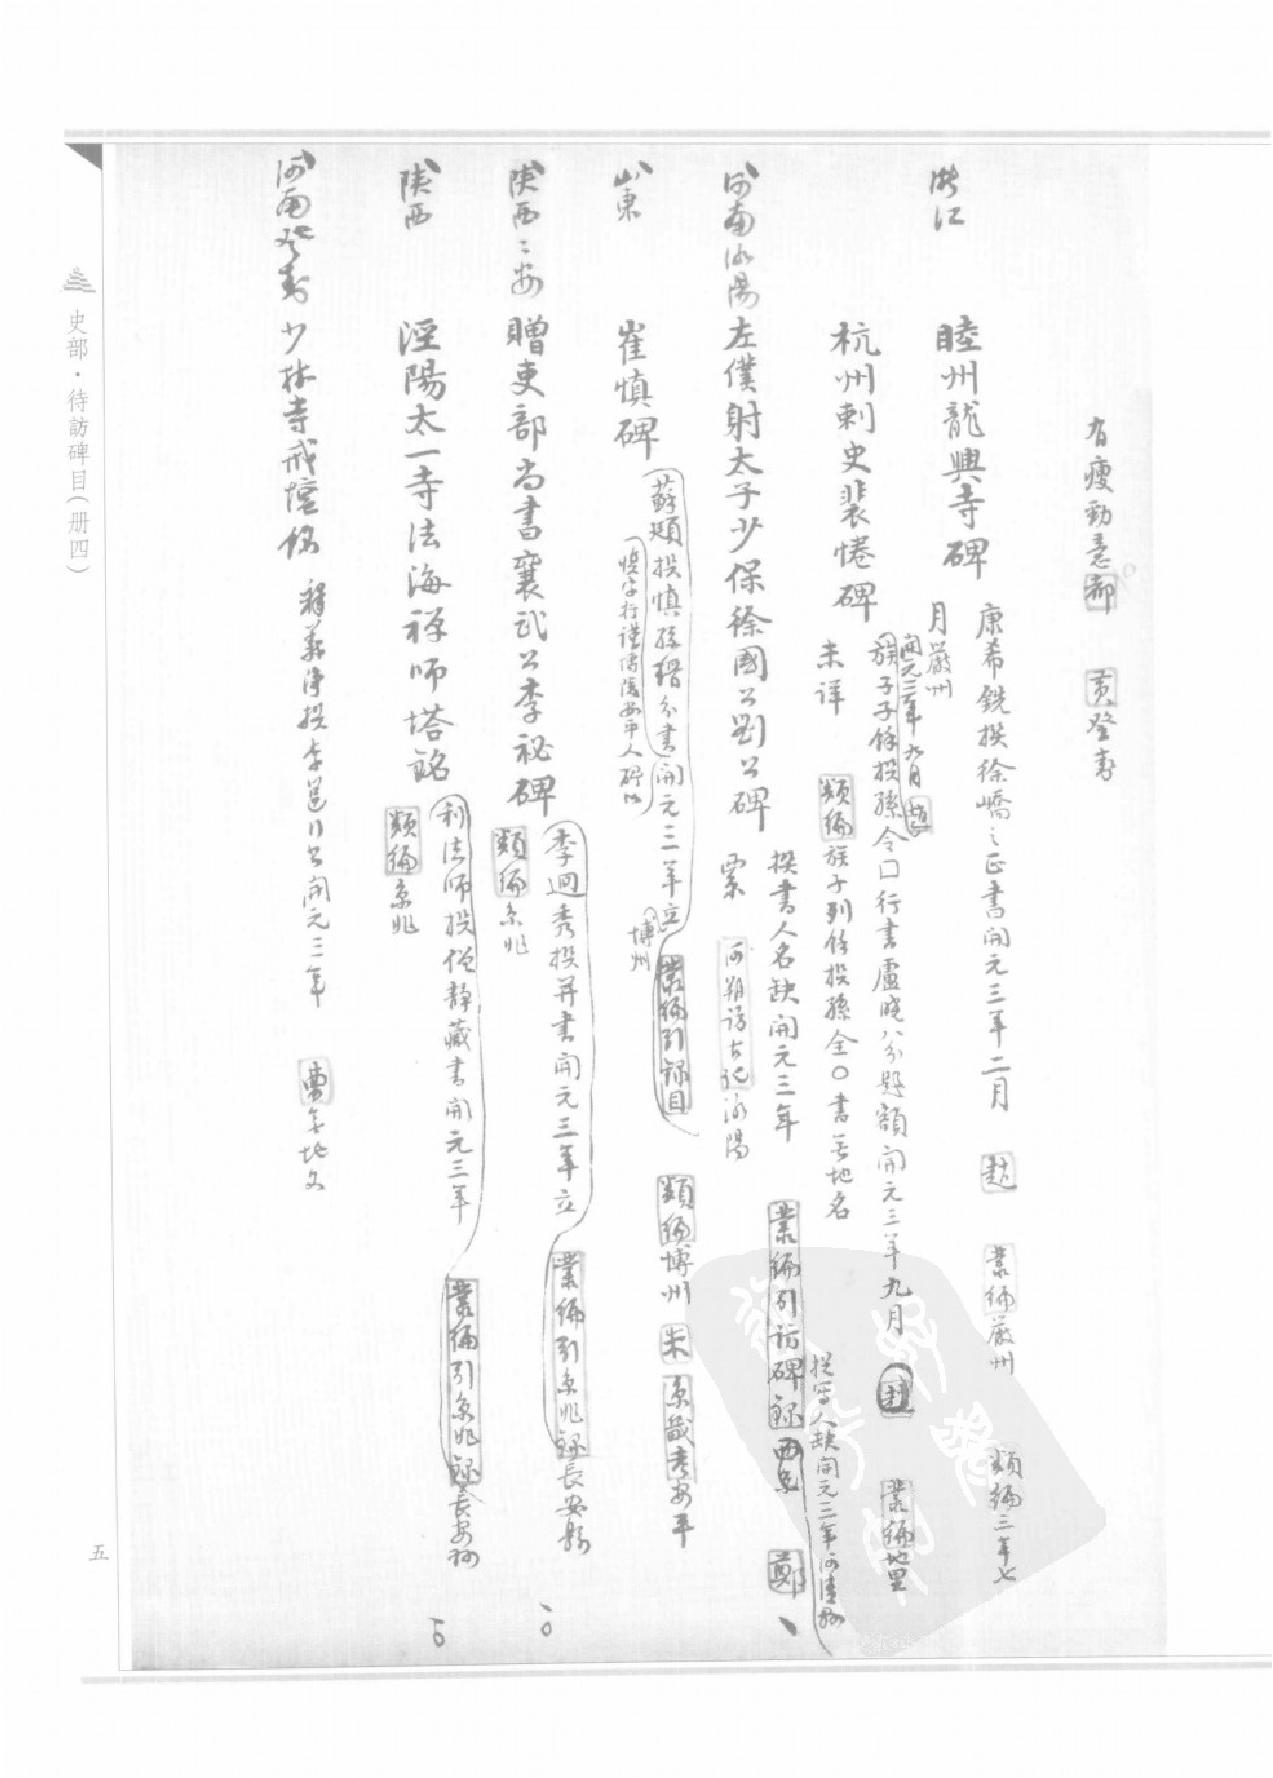 有瘦勁意 都 黃 登封
浙江
睦州龍興寺碑
康希銑撰徐嶠之正書開元三年二月 趙 叢編嚴州 類編三年七
月嚴州
杭州刺史裴惓碑
開元三年九月 趙
族子子餘撰孫令口行書盧曉八分題額開元三年九月 趙 叢編地里
未詳 類編族子列餘撰孫全〇書無地名
河南沁陽
左僕射太子少保徐國公劉公碑
撰書人名缺開元三年 叢編引訪碑錄西京 鄭
撰書人缺開元三年河清縣
河朔訪古記沁陽
山東
崔慎碑
蘇頲撰慎孫縉分書開元三年立 叢編引錄目 類編博州 朱 京畿考安平
慎字行謹
博州
陝西
贈吏部尚書襄武公李祕碑
李迥秀撰并書開元三年立 叢編引京兆錄長安縣
類編京兆
陝西
涇陽太一寺法海禪師塔銘
利法師撰僧靜藏書開元三年 叢編引京兆錄長安縣
類編京兆
河南登封
少林寺戒壇銘
釋義淨撰李邕行書開元三年
史部·待訪碑目（册四）
五